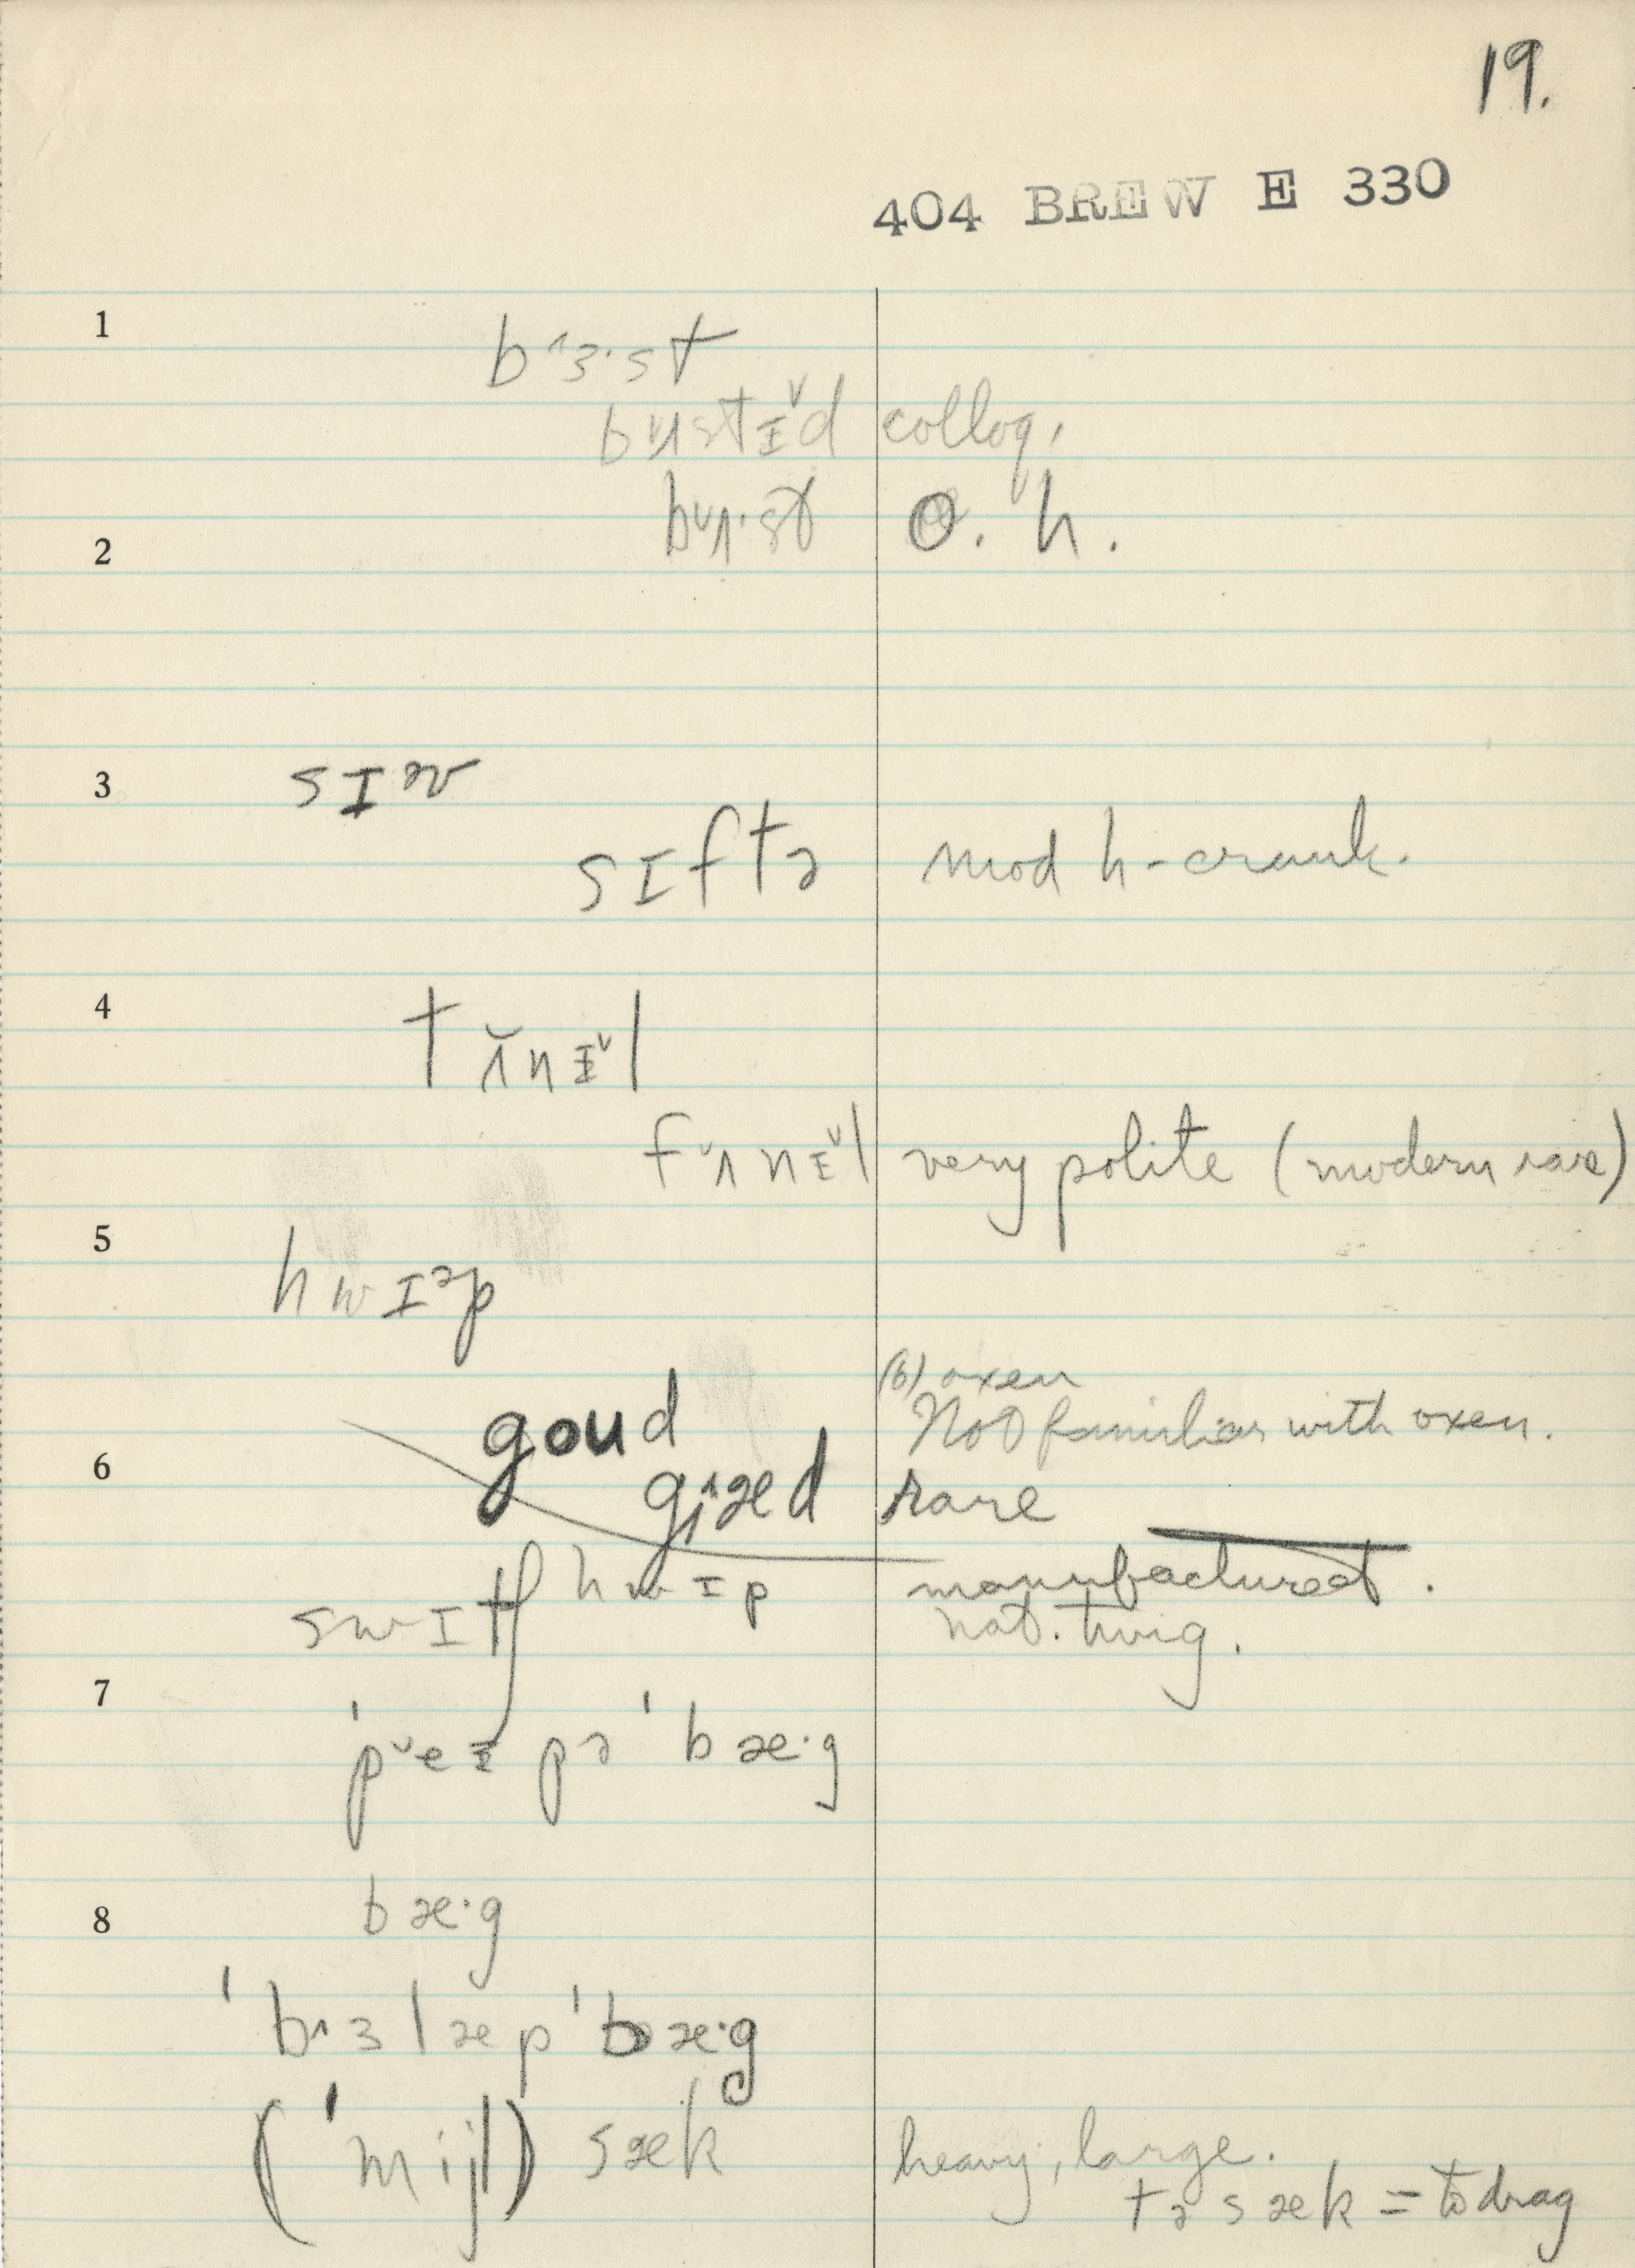 19.
404 BREW E 330
1
bˆɜ·st
bᵛʌstɪᵛd colloq.
2 bᵛʌ·st O. h.
3 sɪᵊv
sɪftə mod h-crank.
4 tʌ̌nɪᵛl
fᵛʌnɪᵛl very polite (modern rare)
5 hwɪᵊp
(6) oxen
goud Not familiar with oxen.
6 gˆæd rare
hwɪp manufactured.
swɪtʃ nat. twig.
7 ˈpᵛeɪpəˈbæ·g
8 bæ·g
ˈbˆɜlæpˈbæ·g
(ˈmijl) sæk heavy, large.
tə sæk = to drag